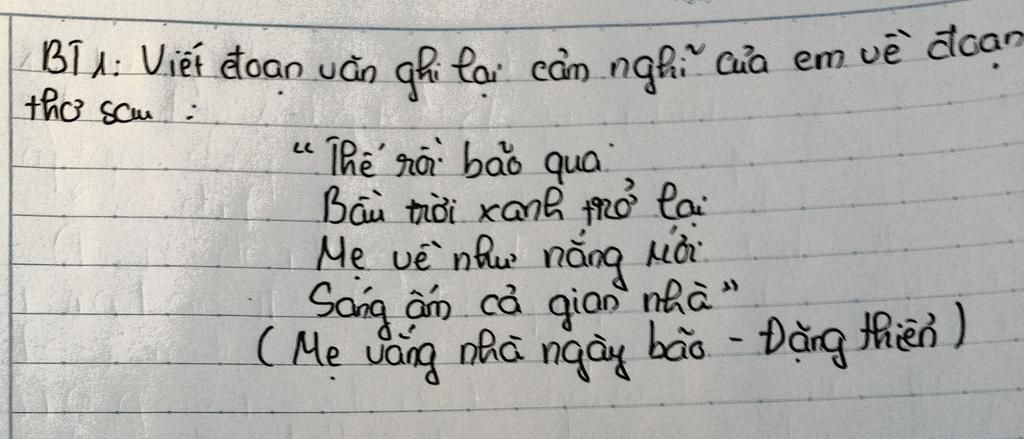 BT 1: Viết đoạn văn ghi lại cảm nghĩ của em về đoạn
thơ sau :
“Thế rồi bão qua
Bầu trời xanh trở lại
Mẹ về như nắng mới
Sáng ấm cả gian nhà”
(Mẹ vắng nhà ngày bão - Đặng Hiển)